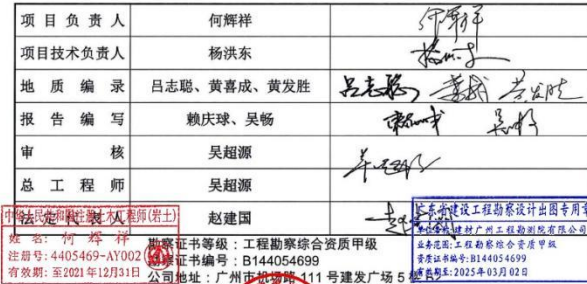 项目负责人 何辉祥 何辉祥
项目技术负责人 杨洪东 杨洪东
地质编录 吕志聪、黄喜成、黄发胜 吕志聪
报告编写 赖庆球、吴畅 吴畅
审核 吴超源
总工程师 吴超源
法定代表人 赵建国
中华人民共和国注册土木工程师(岩土)
姓名: 何辉祥
注册号: 4405469-AY002
有效期: 至2021年12月31日
勘察证书等级：工程勘察综合资质甲级
勘察证书编号：B144054699
公司地址：广州市机场路111号建发广场5楼
广东省建设工程勘察设计出图专用章
建材广州工程勘测院有限公司
业务范围:工程勘察综合资质甲级
资质证书编号:B144054699
有效期至:2025年03月02日